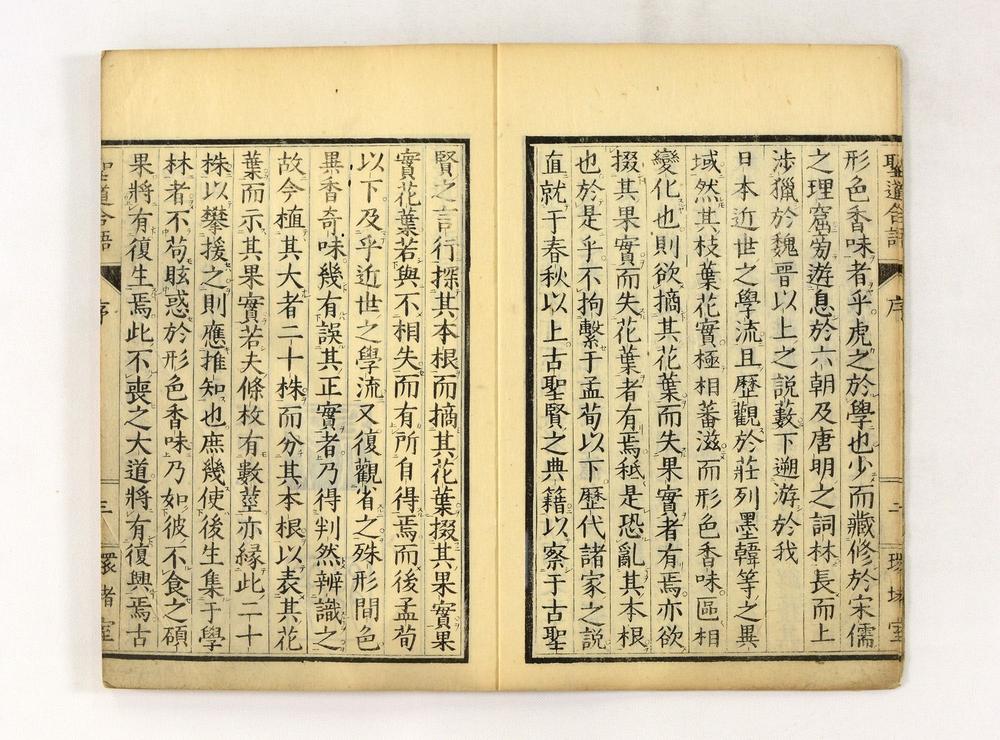 聖道合語 序 二 環堵室
形色香味者乎虎之於學也少而藏修於宋儒
之理窟旁遊息於六朝及唐明之詞林長而上
涉獵於魏晉以上之説藪下遡游於我
日本近世之學流且歷觀於莊列墨韓等之異
域然其枝葉花實極相蕃滋而形色香味區相
變化也則欲摘其花葉而失果實者有焉亦欲
掇其果實而失花葉者有焉秪是恐亂其本根
也於是乎不拘繫于孟荀以下歷代諸家之説
直就于春秋以上古聖賢之典籍以察于古聖
賢之言行探其本根而摘其花葉掇其果實果
實花葉若與不相失而有所自得焉而後孟荀
以下及乎近世之學流又復觀省之殊形間色
異香奇味幾有誤其正實者乃得判然辨識之
故今植其大者二十株而分其本根以表其花
葉而示其果實若夫條枚有數莖亦縁此二十
株以攀援之則應推知也庶幾使後生集于學
林者不苟眩惑於形色香味乃如彼不食之碩
果將有復生焉此不喪之大道將有復興焉古
聖道合語 序 三 環堵室